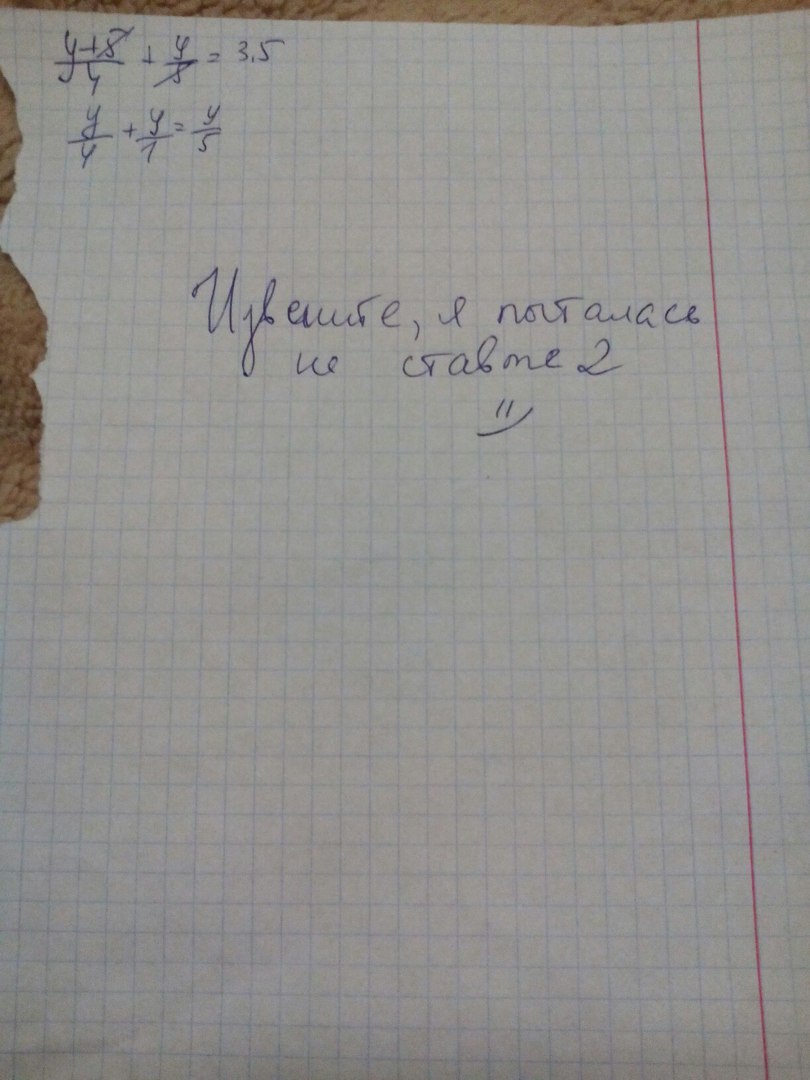 y+8/4 + y/8 = 3,5
y/4 + y/1 = y/5
Извените, я пыталась
не ставте 2